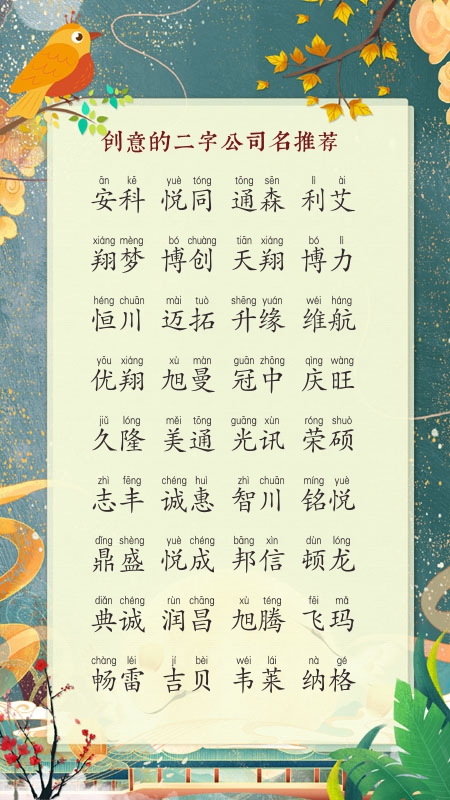 创意的二字公司名推荐
ān kē yuè tóng tōng sēn lì ài
安科 悦同 通森 利艾
xiáng mèng bó chuàng tiān xiáng bó lì
翔梦 博创 天翔 博力
héng chuān mài tuò shēng yuán wéi háng
恒川 迈拓 升缘 维航
yōu xiáng xù màn guān zhōng qìng wàng
优翔 旭曼 冠中 庆旺
jiǔ lóng měi tōng guāng xùn róng shuò
久隆 美通 光讯 荣硕
zhì fēng chéng huì zhì chuān míng yuè
志丰 诚惠 智川 铭悦
dǐng shèng yuè chéng bāng xìn dùn lóng
鼎盛 悦成 邦信 顿龙
diǎn chéng rùn chāng xù téng fēi mǎ
典诚 润昌 旭腾 飞玛
chàng léi jí bèi wéi lái nà gé
畅雷 吉贝 韦莱 纳格